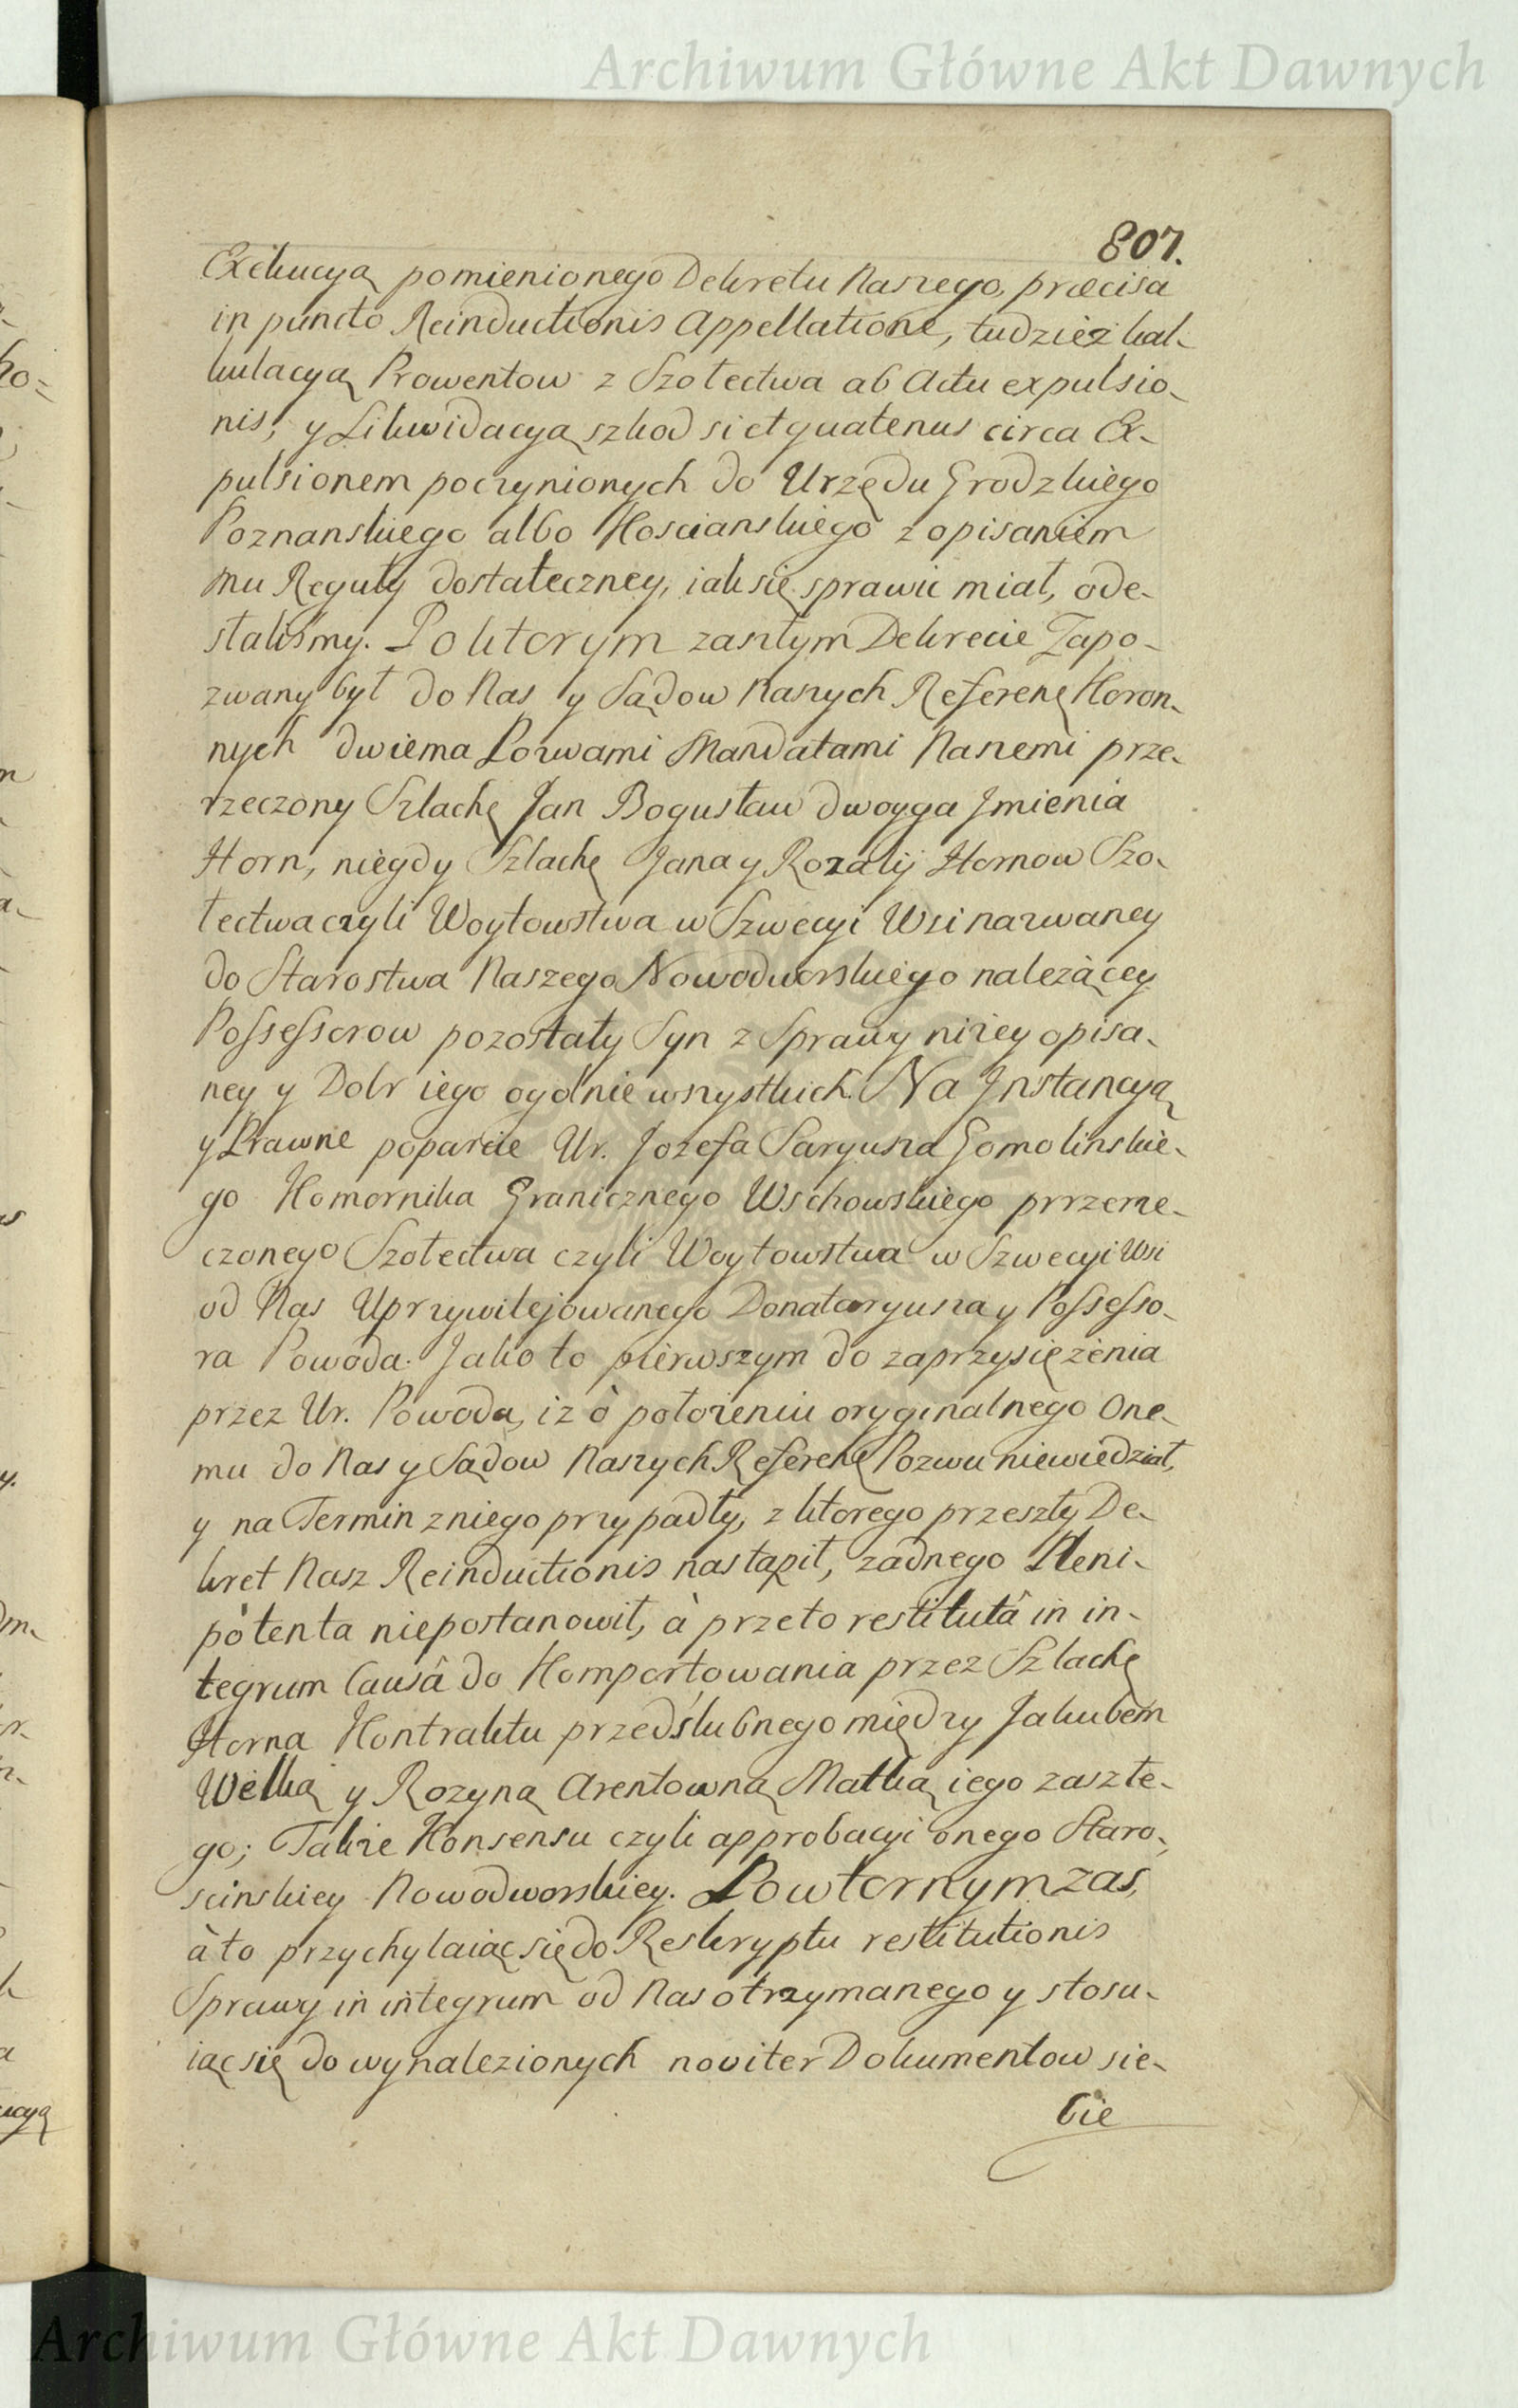 Archiwum Główne Akt Dawnych
807.
Exekucyą pomienionego Dekretu Naszego, præcisa
in puncto Reinductionis Appellatione, tudzież kal-
kulacyą Prowentow z Szołectwa ab Actu expulsio-
nis, y Likwidacyą szkod si et quatenus circa Ex-
pulsionem poczynionych do Urzędu Grodzkiego
Poznanskiego albo Kościanskiego z opisaniem
mu Reguły dostateczney, iak się sprawić miał, ode-
słaliśmy. Po ktorym zaszłym Dekrecie Zapo-
zwany był do Nas y Sądow Naszych Referenę Koron-
nych dwiema Pozwami Mandatami Naszemi prze-
rzeczony Szlachę Jan Bogusław dwoyga Jmienia
Horn, niegdy Szlachę Jana y Rozalij Hornow Szo-
łectwa czyli Woytowstwa w Szwecyi Wsi nazwaney
do Starostwa Naszego Nowodworskiego należącey
Possessorow pozostały Syn z Sprawy niżey opisa-
ney y Dobr iego ogolnie wszystkich. Na Jnstancyą
y Prawne poparcie Ur. Jozefa Saryusza Gomolinskie-
go Komornika Granicznego Wschowskiego przerze-
czonego Szołectwa czyli Woytowstwa w Szwecyi Wsi
od Nas Uprzywilejowanego Donataryusza y Possesso-
ra Powoda. Jako to pierwszym do zaprzysiężenia
przez Ur. Powoda, iż ò położeniu oryginalnego One-
mu do Nas y Sądow Naszych Referenę Pozwu niewiedział,
y na Termin z niego przypadły, z ktorego przeszły De-
kret Nasz Reinductionis nastąpił, żadnego Pleni-
potenta niepostanowił, à przeto restitutâ in in-
tegrum Causâ do Komportowania przez Szlachę
Horna Kontraktu przedślubnego między Jakubem
Welką y Rozyną Arentowną Matką iego zaszłe-
go; Także Konsensu czyli approbacyi onego Staro-
scinskiey Nowodworskiey. Powtornym zaś,
à to przychylaiąc się do Reskryptu restitutionis
Sprawy in integrum od Nas otrzymanego y stosu-
iąc się do wynalezionych noviter Dokumentow sie-
bie
Archiwum Główne Akt Dawnych